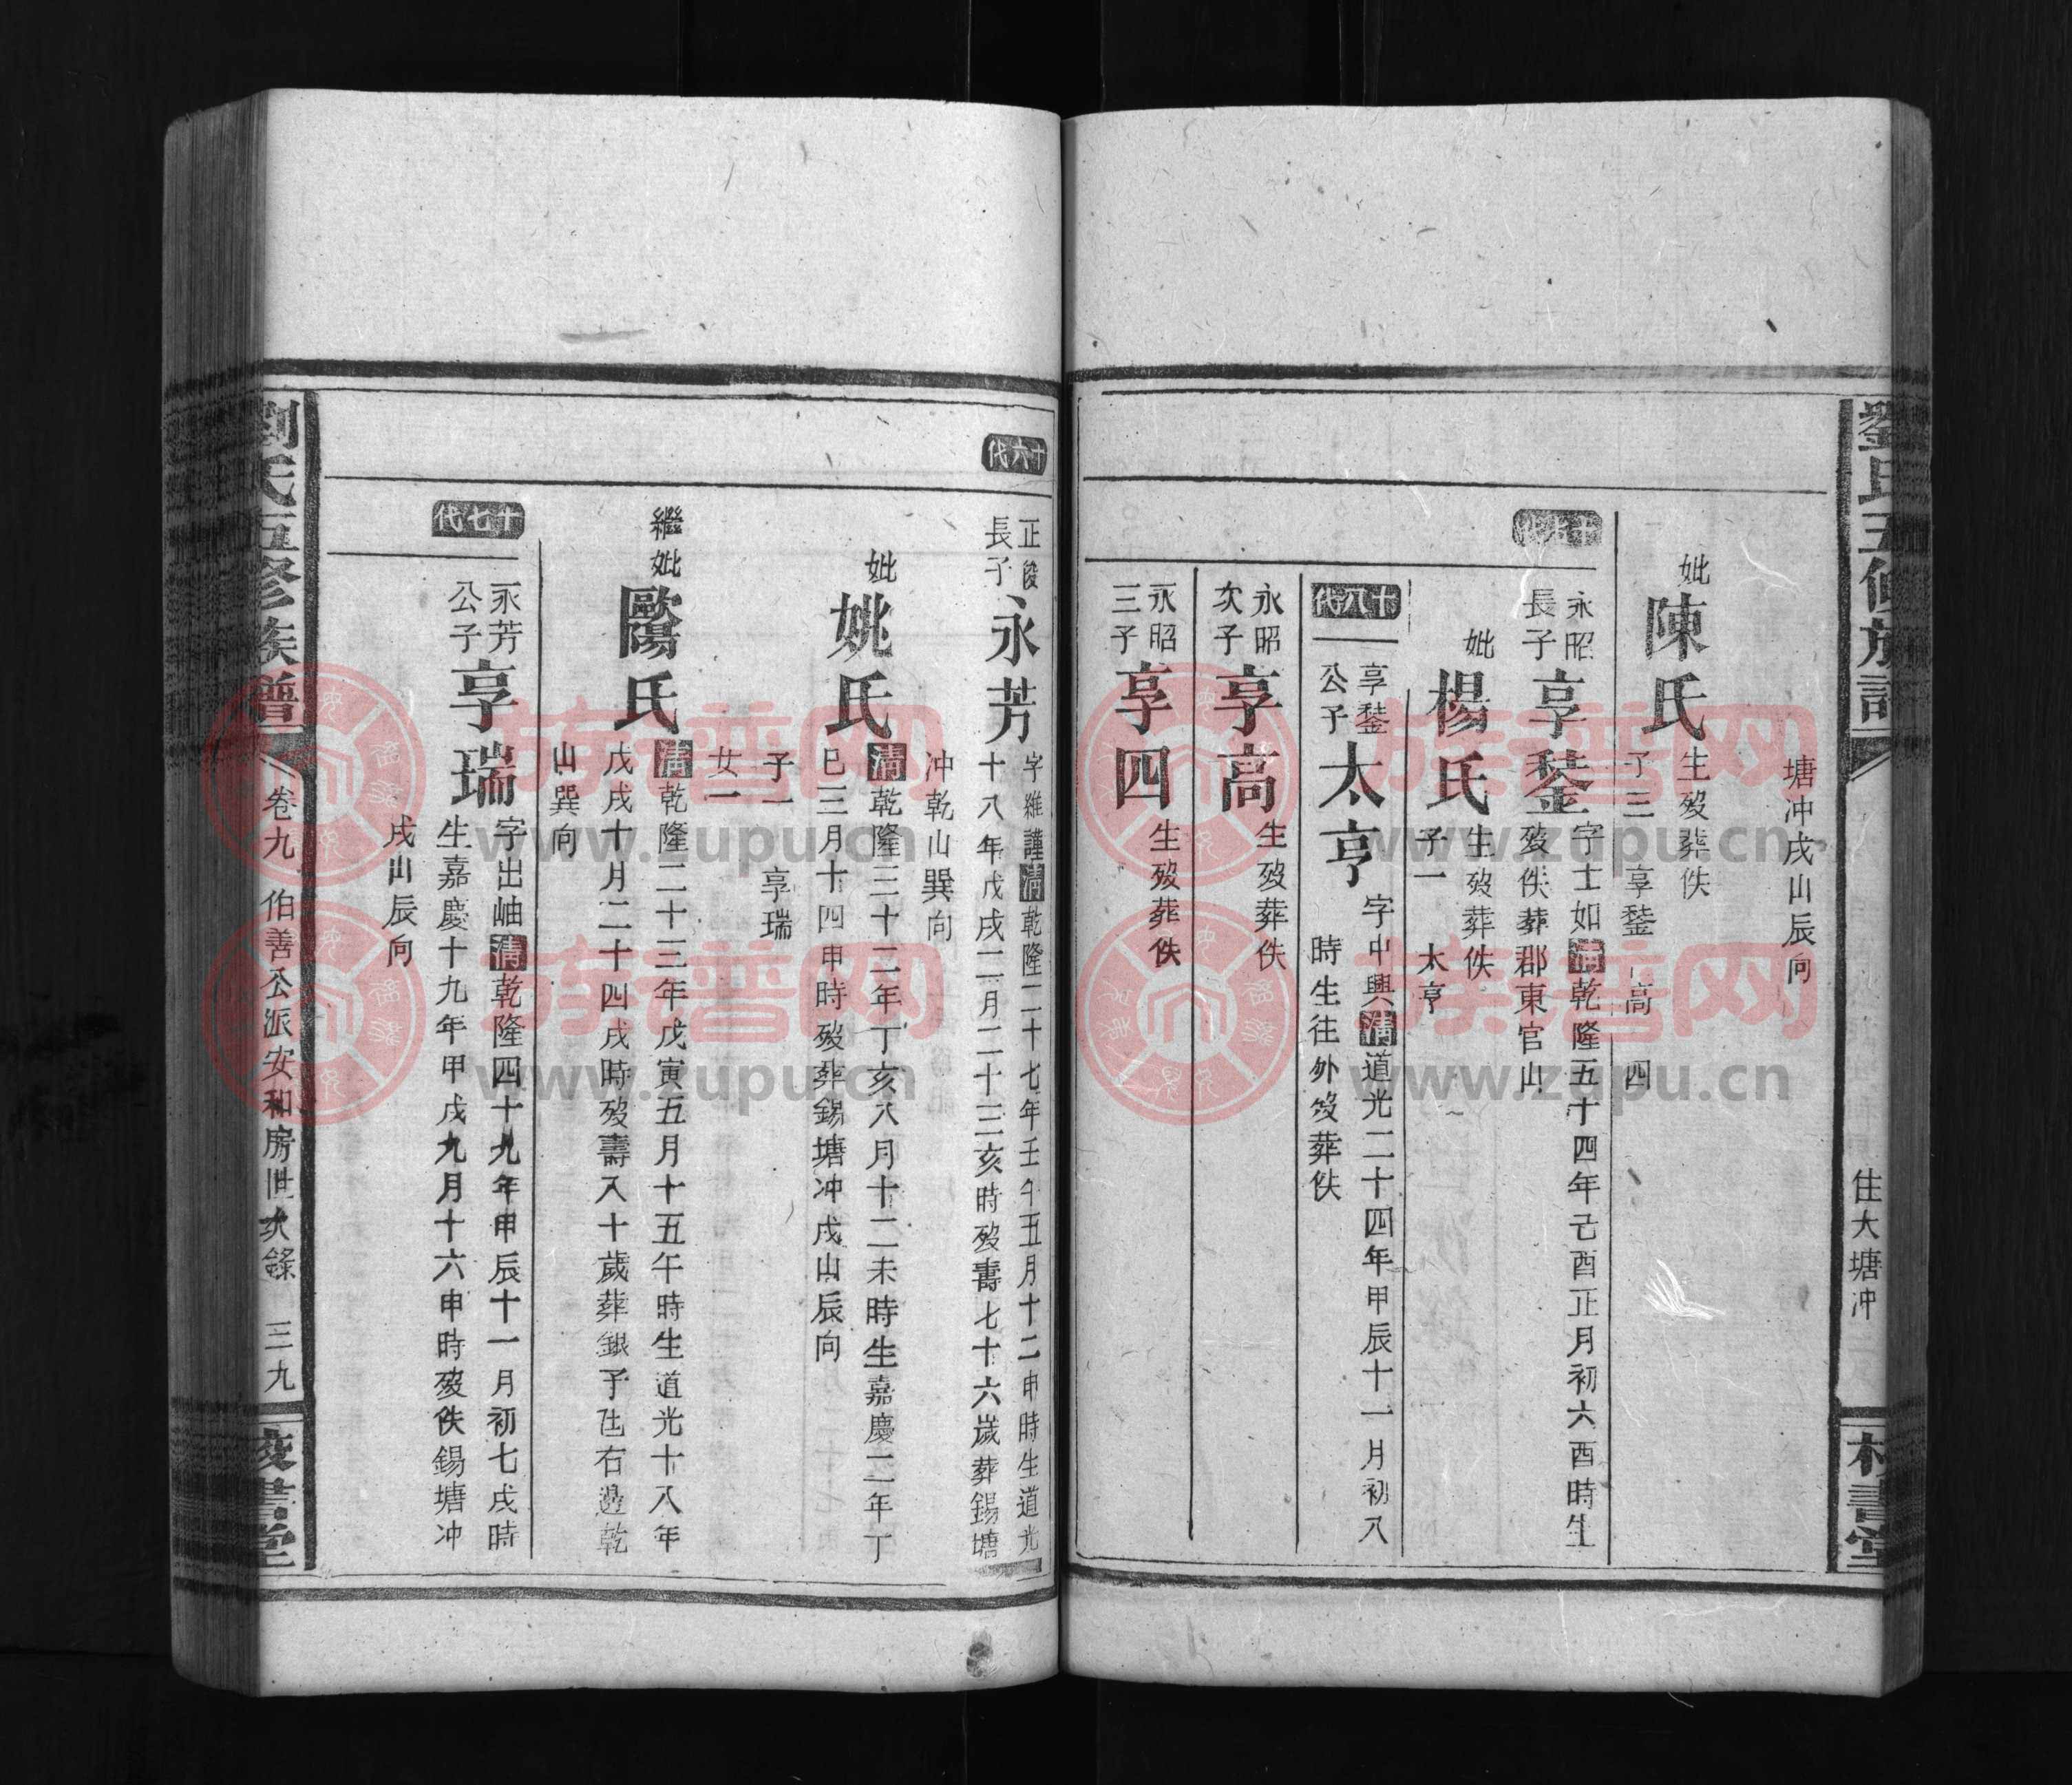 劉氏五修族譜
住大塘冲
塘冲戌山辰向
妣
陳氏
生殁葬佚
子三 享鍫 高 四
十七代
永昭
長子
享鍫
字士如清乾隆五十四年己酉正月初六酉時生
殁佚葬郡東官山
妣
楊氏
生殁葬佚
子一 太亨
十八代
享鍫
公子
太亨
字中興清道光二十四年甲辰十一月初八
時生往外歿葬佚
永昭
次子
享高
生殁葬佚
永昭
三子
享四
生殁葬佚
十六代
正段
長子
永芳
字維謹清乾隆二十七年壬午五月十二申時生道光
十八年戊戌二月二十三亥時殁壽七十六歲葬錫塘
冲乾山巽向
妣
姚氏
清乾隆三十二年丁亥八月十二未時生嘉慶二年丁
巳三月十四申時殁葬錫塘冲戌山辰向
子一 享瑞
女一
繼妣
歐陽氏
清乾隆二十三年戊寅五月十五午時生道光十八年
戊戌十月二十四戌時殁壽八十歲葬銀子凸右邊乾
山巽向
十七代
永芳
公子
享瑞
字出岫清乾隆四十九年甲辰十一月初七戌時
生嘉慶十九年甲戌九月十六申時殁佚錫塘冲
戌山辰向
劉氏五修族譜
卷九 伯善公派安和房世次錄 三九
族普网
www.zupu.cn
族普网
www.zupu.cn
族普网
www.zupu.cn
族普网
www.zupu.cn